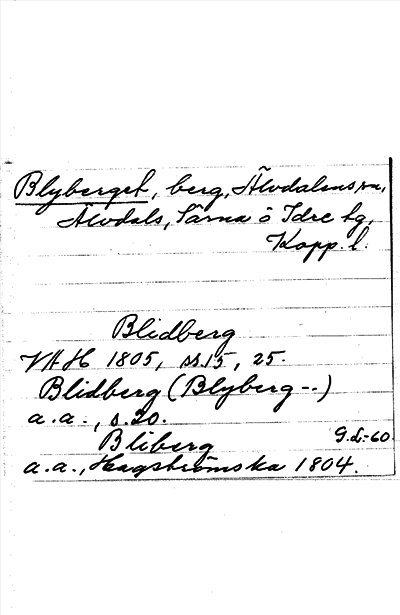 Blyberget, berg, Älvdalens sn,
Älvdals, Särna o Idre tg,
Kopp. l.
Blidberg
VAH 1805, ss. 15, 25.
Blidberg (Blyberg--)
a. a., s. 20.
Bliberg
G.L.-60.
a. a., Hagströmska 1804.